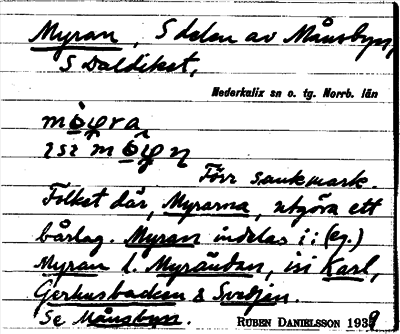 Myran, S delen av Månsbyn,
S Daldiket,
Nederkalix sn o. tg. Norrb. län
Förr sankmark.
Folket där, Myrarna, utgöra ett
bålag. Myran indelas i: (ej.)
Myran l. Myrändan, isi Karl,
Gerkusbacken & Svedjan.
Se Månsbyn.
RUBEN DANIELSSON 1939